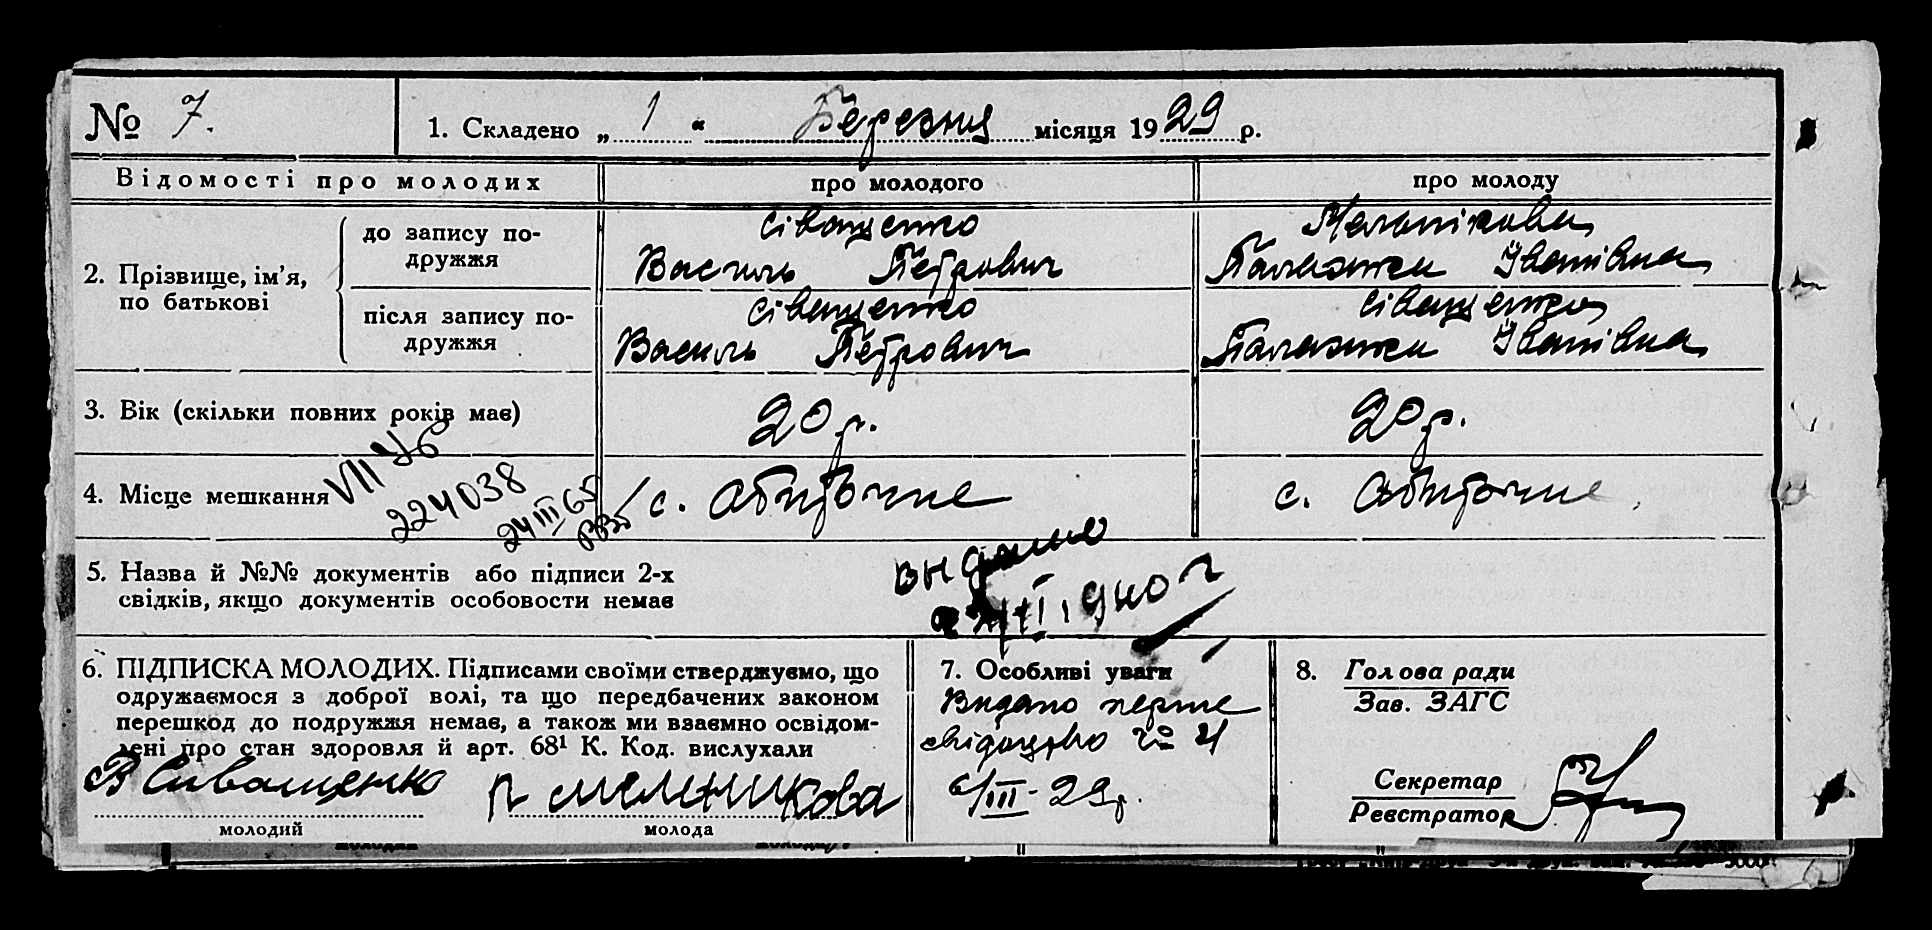 № 7.
1. Складено „ 1 “ Березня місяця 1929 р.
Відомості про молодих
про молодого
про молоду
2. Прізвище, ім’я,
по батькові
до запису по-
дружжя
Сіващенко
Василь Петрович
Мельнікова
Палажка Іванівна
після запису по-
дружжя
Сіващенко
Василь Петрович
Сіващенко
Палажка Іванівна
3. Вік (скільки повних років має)
20 р.
20 р.
4. Місце мешкання
с. Обиточне
с. Обиточне
VII УБ
224038
24 III 65
5. Назва й №№ документів або підписи 2-х
свідків, якщо документів особовости немає
6. ПІДПИСКА МОЛОДИХ. Підписами своїми стверджуємо, що
одружаємося з доброї волі, та що передбачених законом
перешкод до подружжя немає, а також ми взаємно освідом-
лені про стан здоровля й арт. 68¹ К. Код. вислухали
В Сиващенко
молодий
П Мельникова
молода
7. Особливі уваги
Видано перше
свідоцтво № 4
6/III-29 р.
8. Голова ради
Зав. ЗАГС
Секретар
Реєстратор